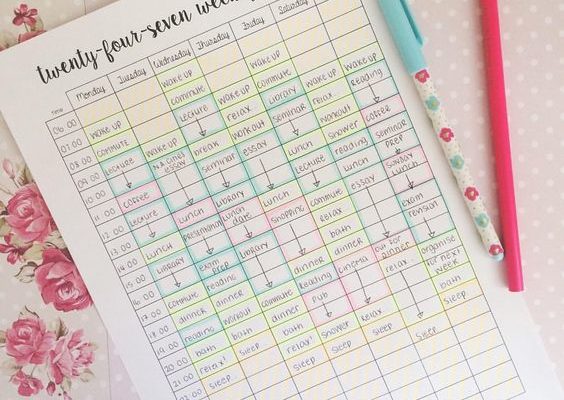 twenty-four-seven
Monday
Tuesday
Wednesday
Thursday
Friday
Saturday
TIME
06:00
07:00
08:00
09:00
10:00
11:00
12:00
13:00
14:00
15:00
16:00
17:00
18:00
19:00
20:00
21:00
22:00
wake up
commute
lecture
coffee
lecture
lunch
library
commute
dinner
reading
bath
relax!
sleep
wake up
essay
lunch
presentation
exam
prep
reading
dinner
workout
bath
sleep
wake up
commute
lecture
break
seminar
library
lunch
date
library
commute
dinner
bath
relax!
sleep
wake up
relax
workout
essay
lunch
shopping
dinner
reading
pub
shower
sleep
wake up
commute
library
seminar
lunch
lecture
commute
relax
bath
dinner
cinema
relax
sleep
wake up
relax
workout
shower
reading
essay
out for
dinner
relax
sleep
wake up
reading
coffee
seminar
prep
sunday
lunch
exam
revision
organise
for next
week
bath
sleep